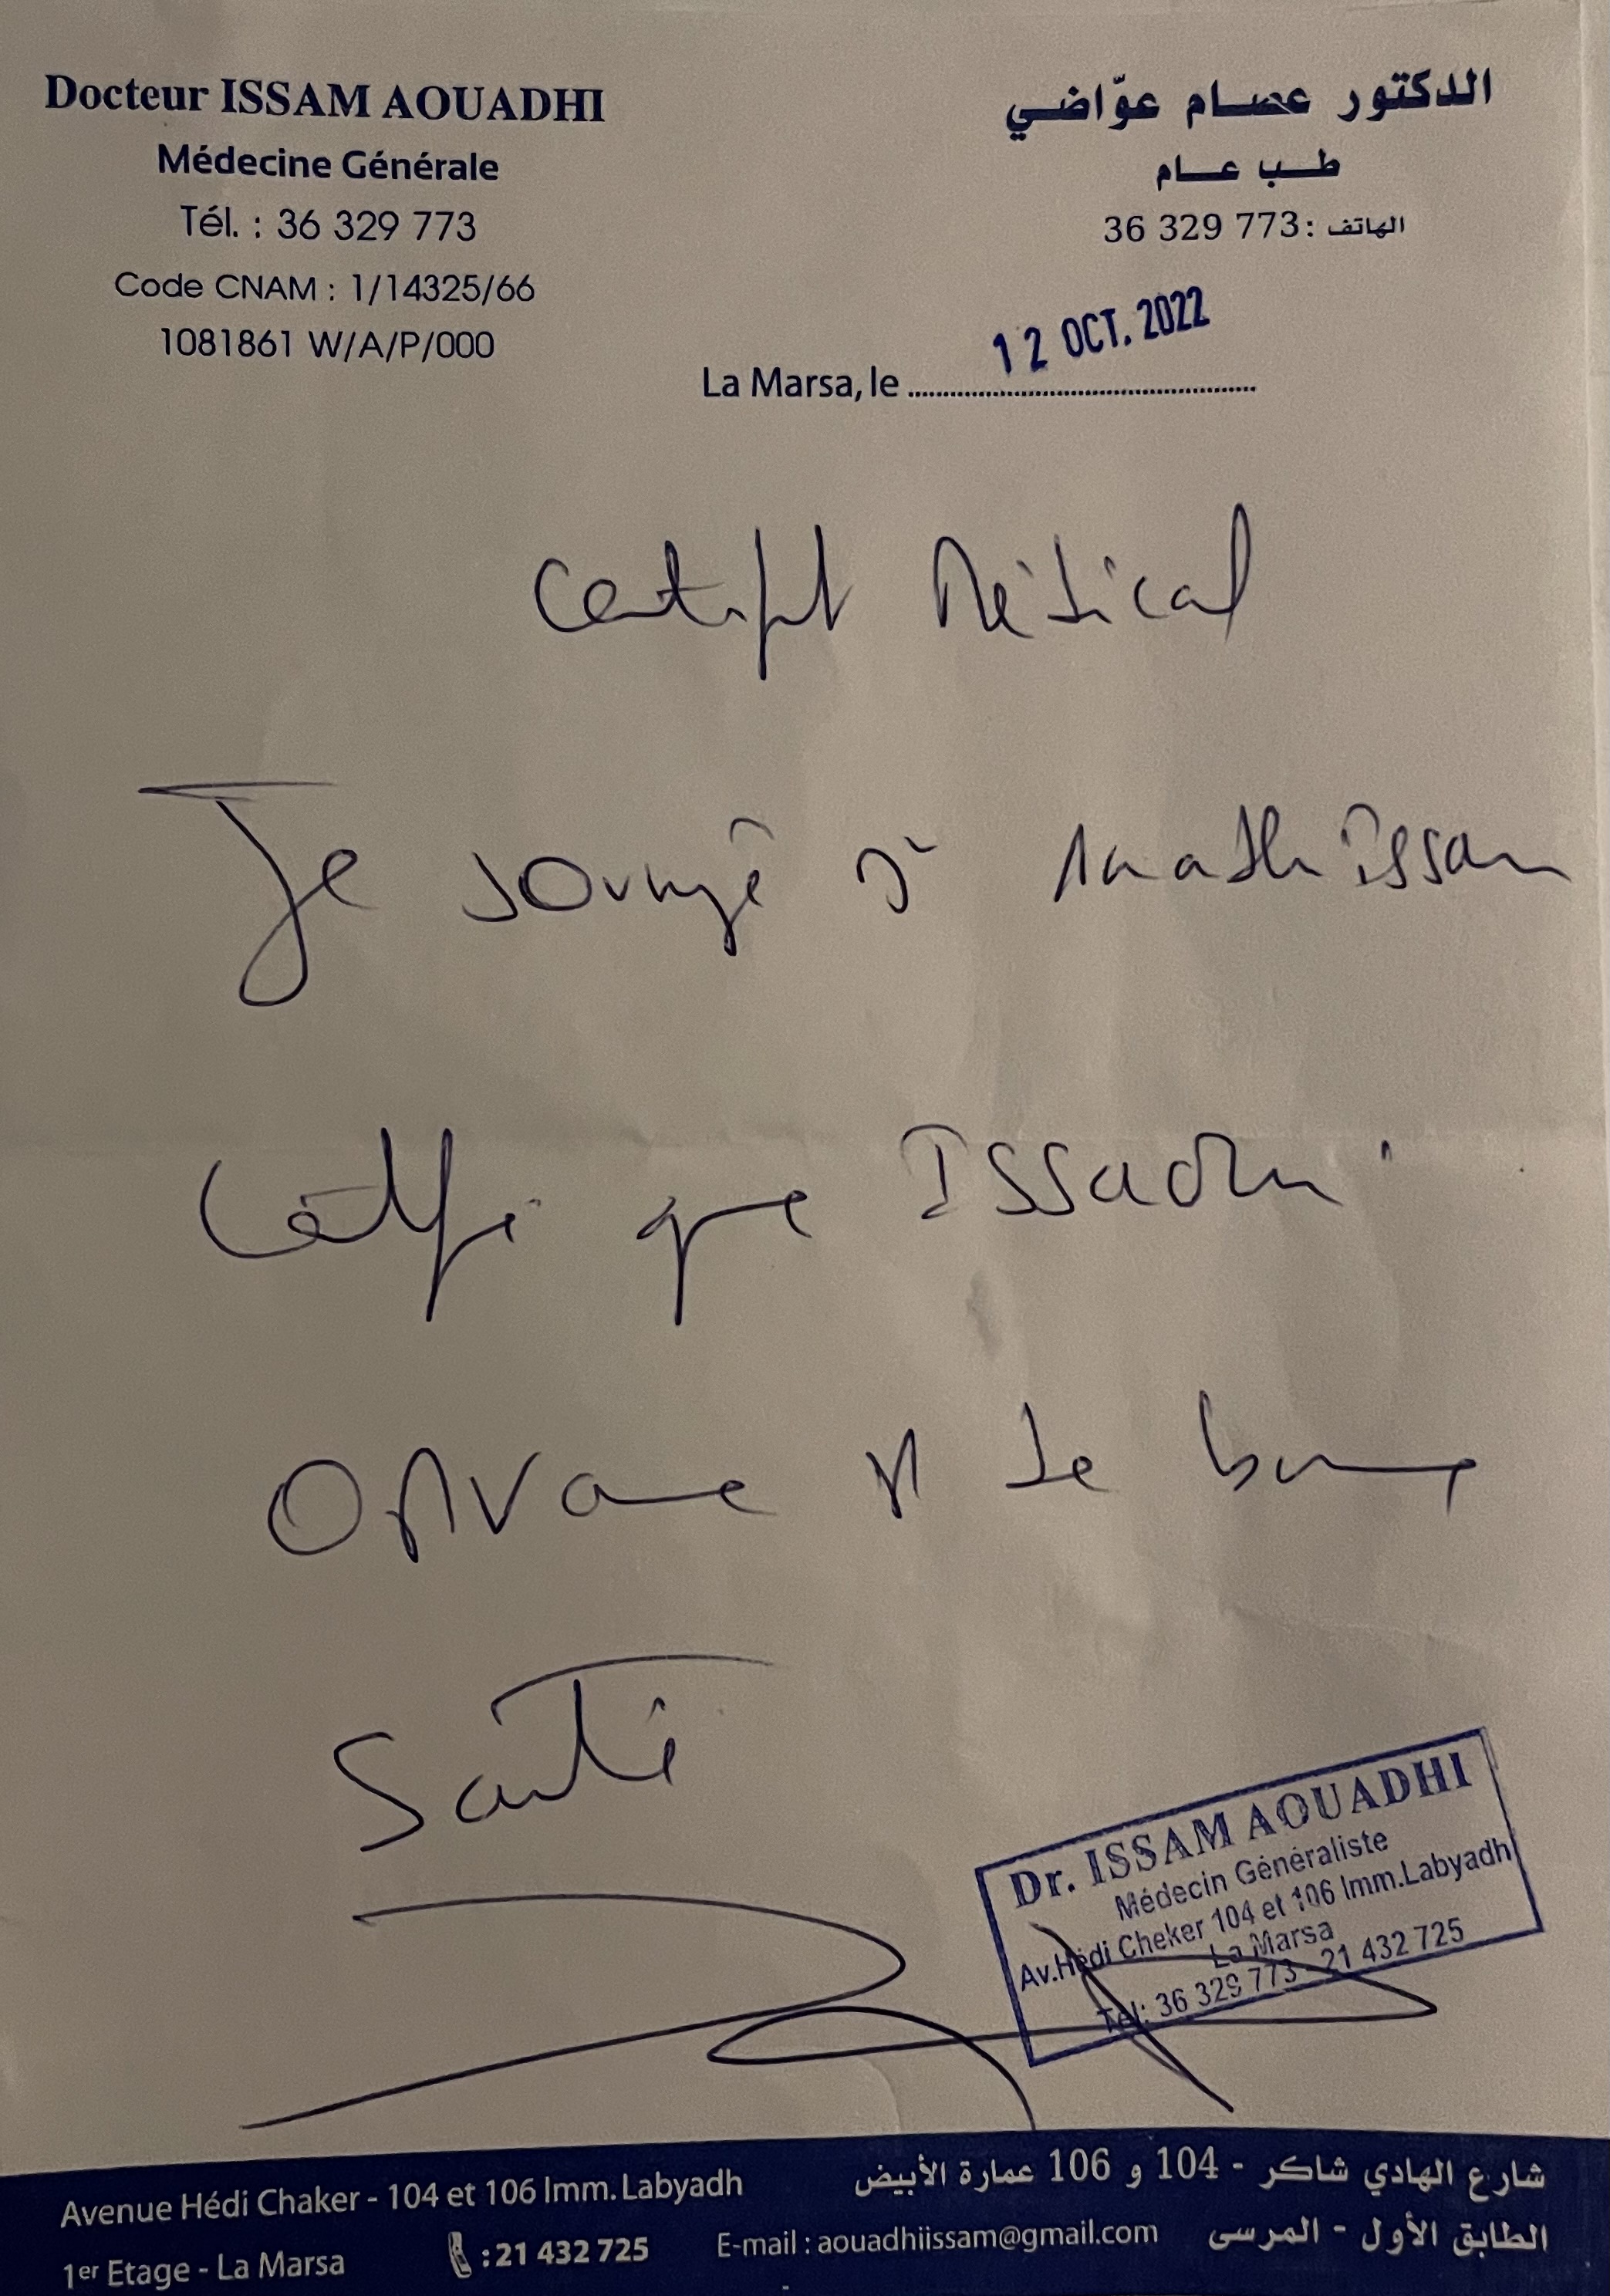 Docteur ISSAM AOUADHI
Médecine Générale
Tél. : 36 329 773
Code CNAM : 1/14325/66
1081861 W/A/P/000
الدكتور عصام عوّاضي
طب عام
الهاتف : 36 329 773
La Marsa, le 12 OCT. 2022
Certificat Médical
Je soussigné Dr Aouadhi Issam
Certifie que Issaoui
est de bonne
Santé
Dr. ISSAM AOUADHI
Médecin Généraliste
Av.Hédi Cheker 104 et 106 Imm.Labyadh
La Marsa
Tél: 36 329 773 - 21 432 725
Avenue Hédi Chaker - 104 et 106 Imm. Labyadh
1er Etage - La Marsa
: 21 432 725
E-mail : aouadhiissam@gmail.com
شارع الهادي شاكر - 104 و 106 عمارة الأبيض
الطابق الأول - المرسى